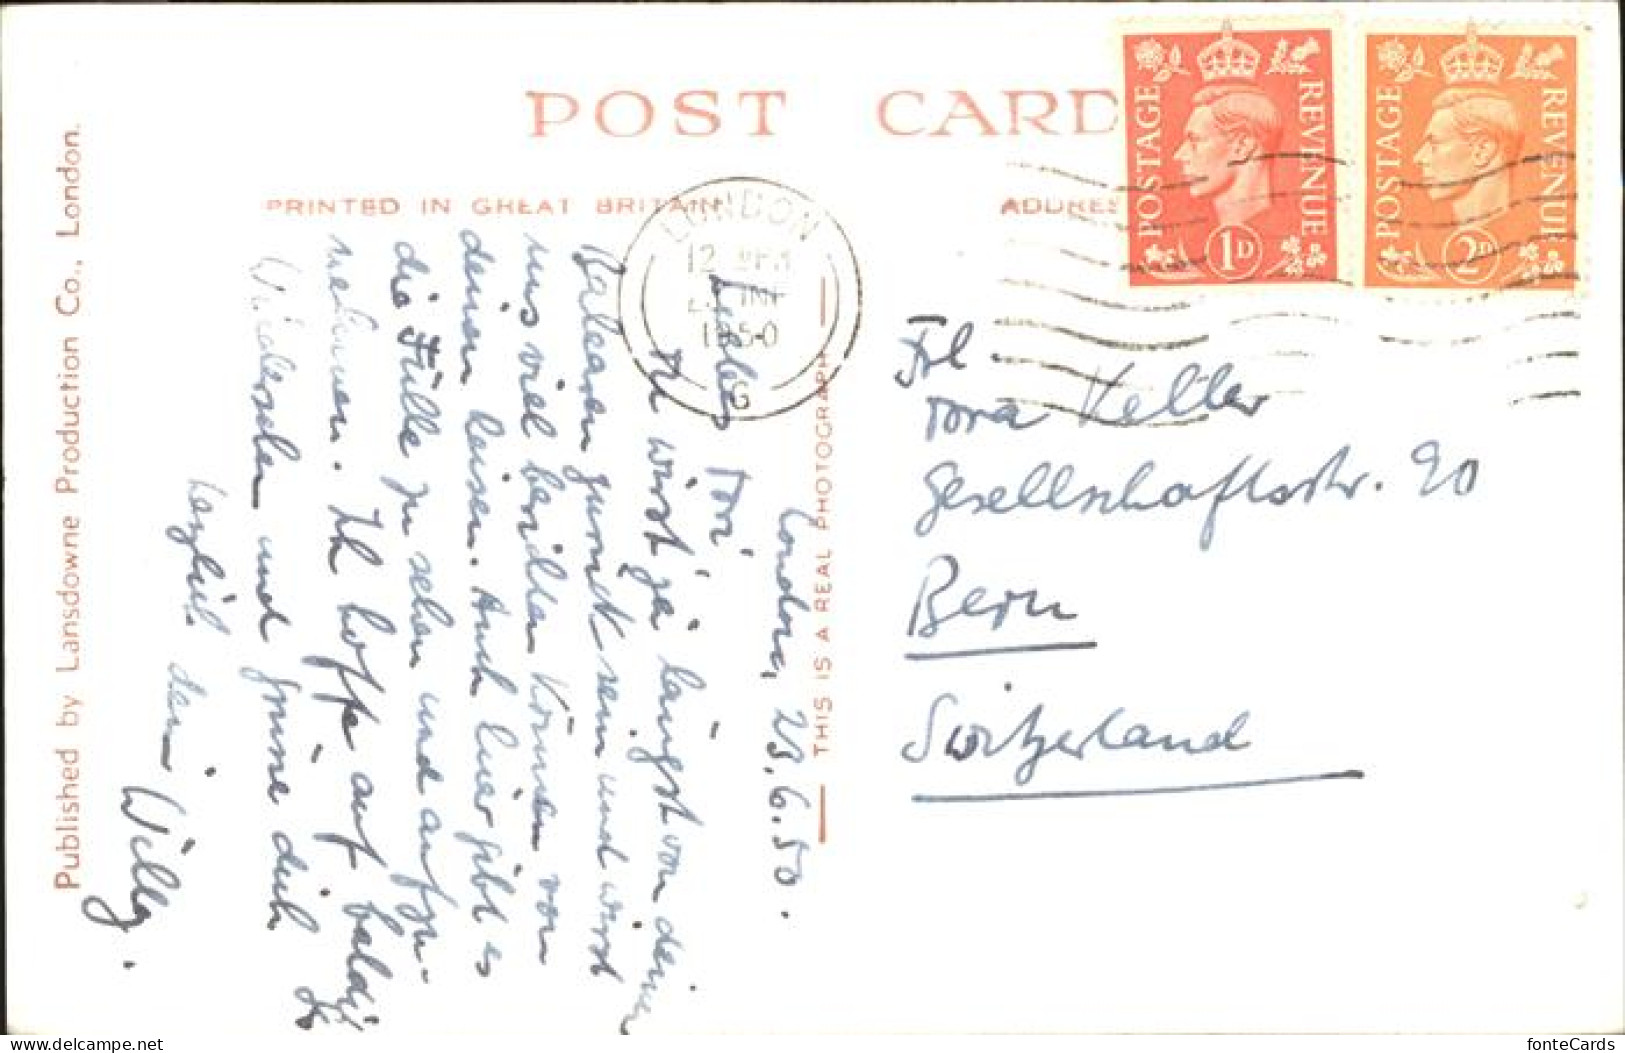 POST CARD
PRINTED IN GREAT BRITAIN
ADDRES
POSTAGE REVENUE
1D
POSTAGE REVENUE
2D
LONDON
1950
Published by Lansdowne Production Co., London.
THIS IS A REAL PHOTOGRAPH
London, 23.6.50.
Liebes Dori
Du wirst ja längst von deinen
Balearen zurück sein und wirst
uns viel berichten können von
deinen Reisen. Auch hier gibt es
die Fülle zu sehen und aufzu-
nehmen. Ich hoffe auf baldig
Wiedersehen und grüsse dich
herzlich dein
Willy.
Frl
Dora Keller
Gesellschaftsstr. 90
Bern
Switzerland
fonteCards
delcampe.net